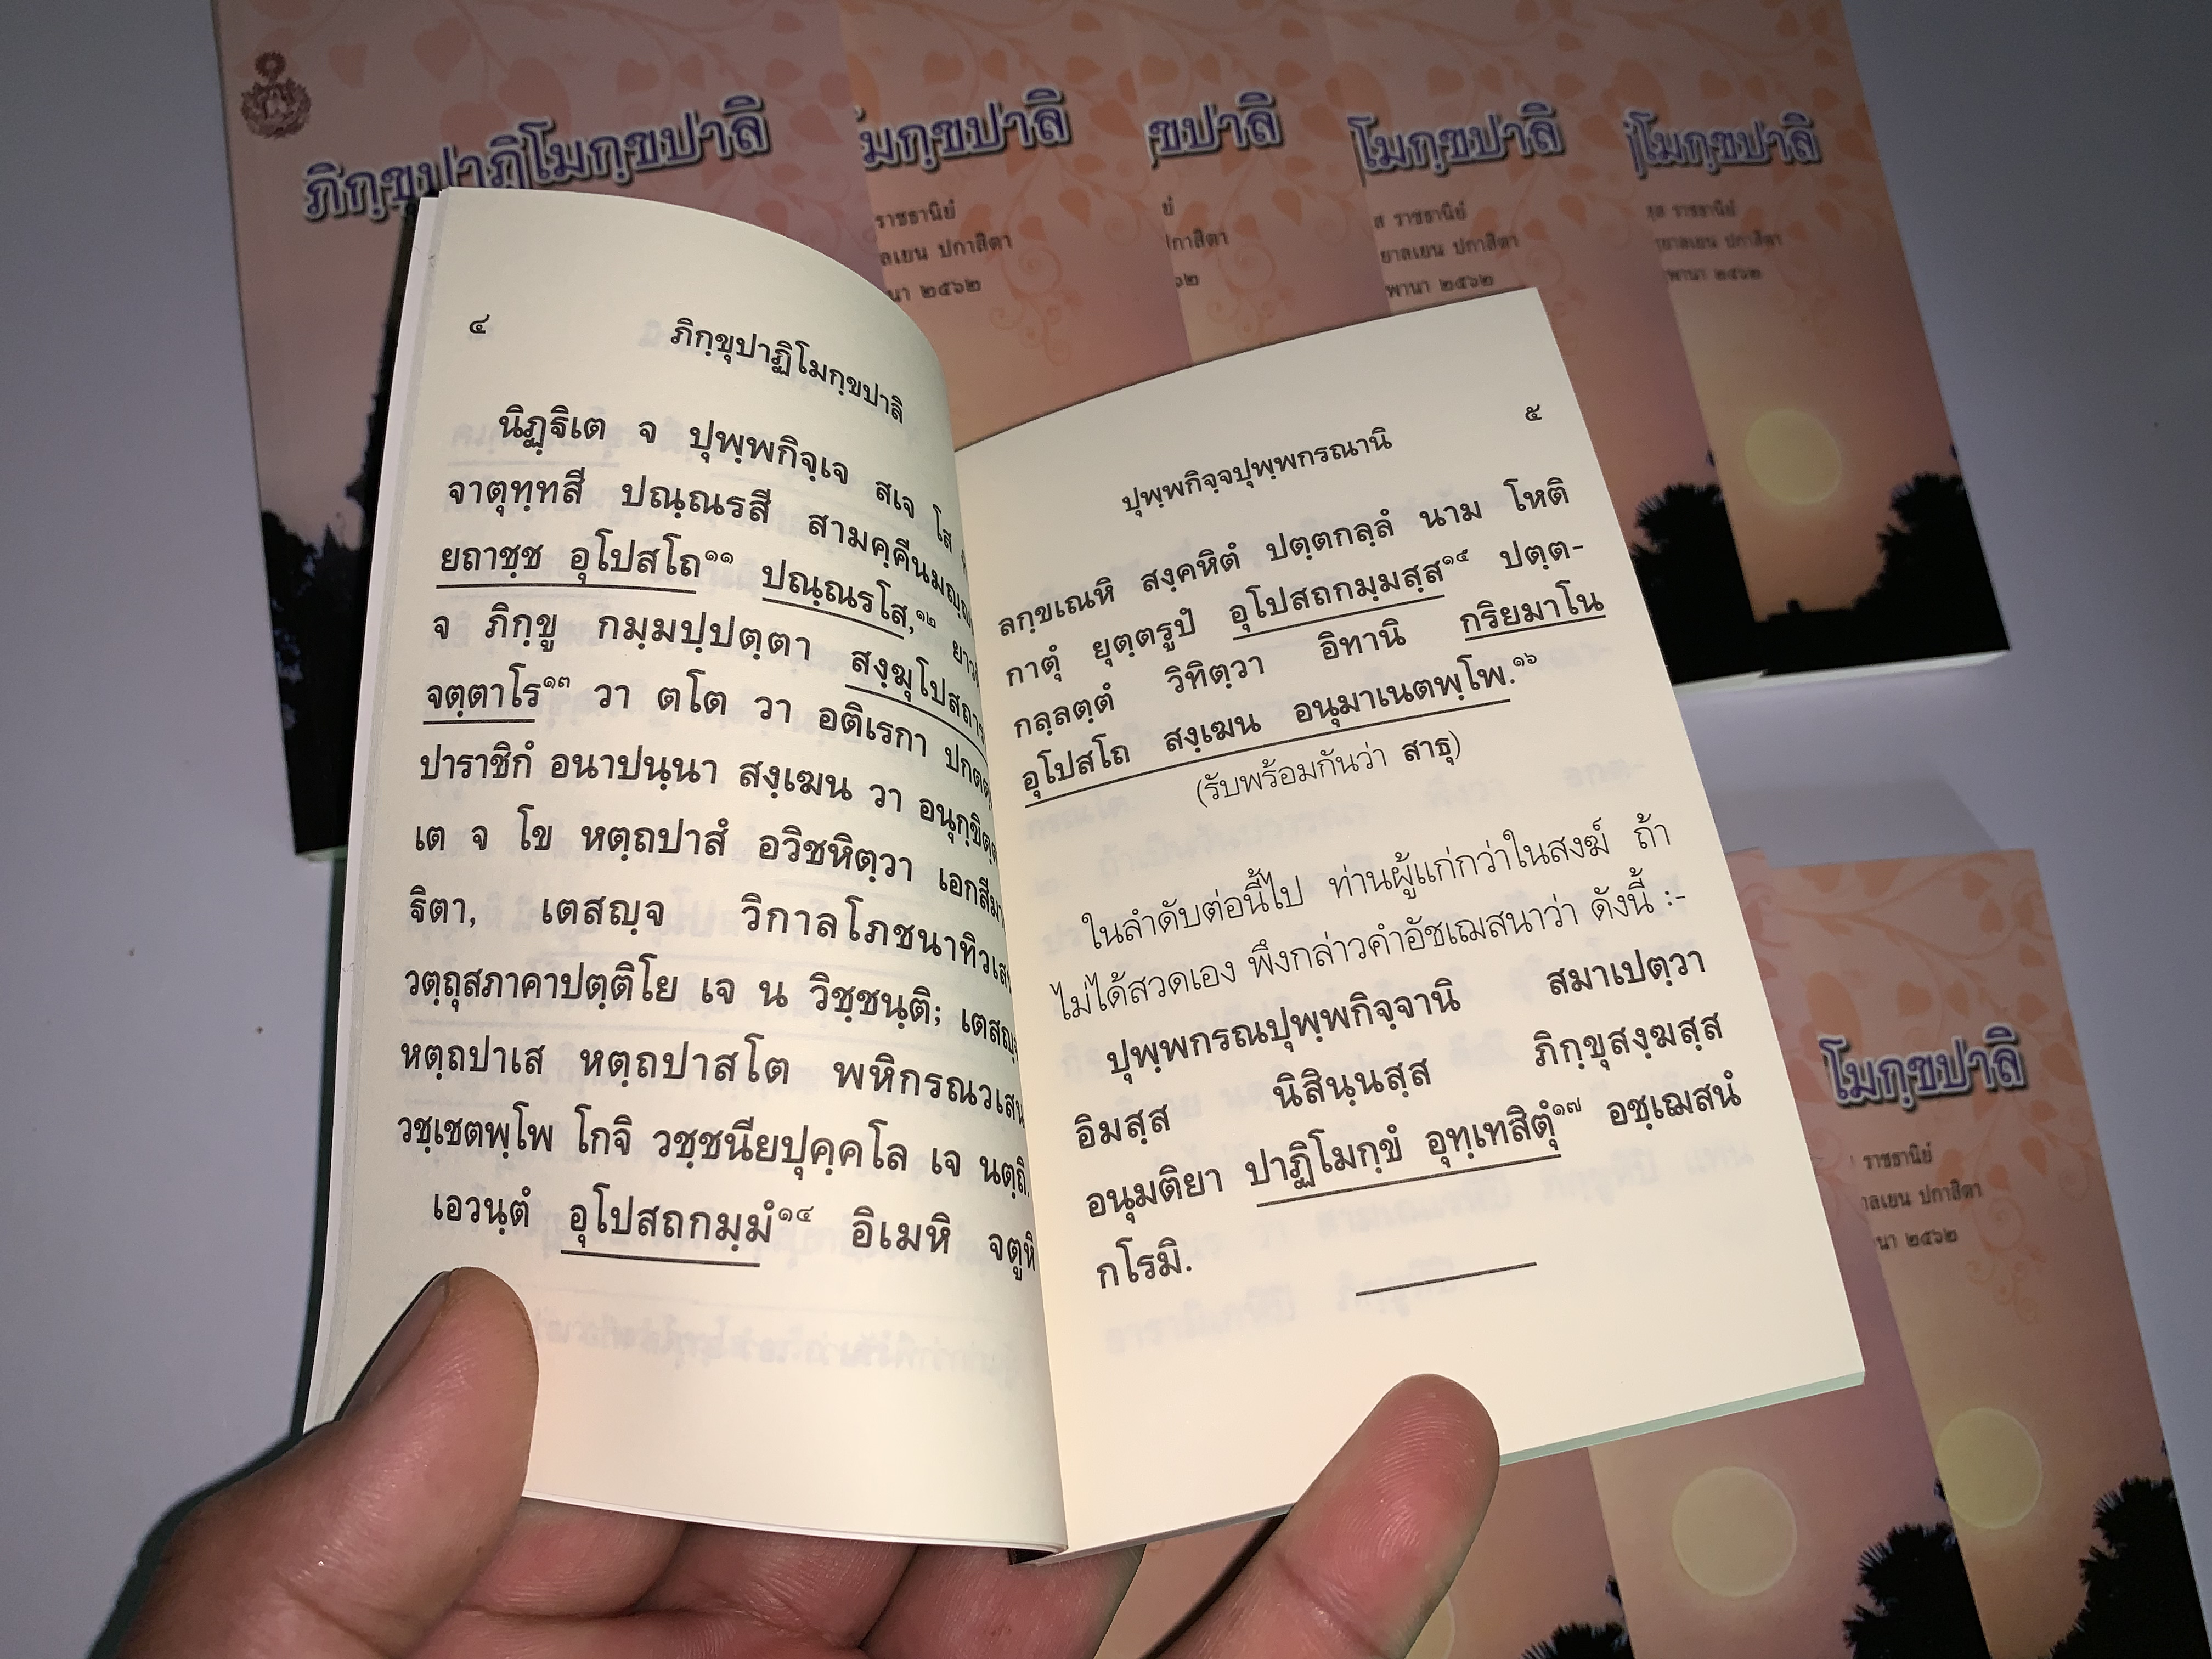 ภิกฺขุปาฏิโมกฺขปาลิ
โมกฺขปาลิ
ราชธานิยํ
ลเยน ปกาสิตา
นา ๒๕๖๒
ขปาลิ
ยํ
กาสิตา
๖๒
โมกฺขปาลิ
ส ราชธานิยํ
ยาลเยน ปกาสิตา
พานา ๒๕๖๒
ฏิโมกฺขปาลิ
สฺส ราชธานิยํ
ยาลเยน ปกาสิตา
พานา ๒๕๖๒
๔ ภิกฺขุปาฏิโมกฺขปาลิ
นิฏฺฐิเต จ ปุพฺพกิจฺเจ สเจ โส
จาตุทฺทสี ปณฺณรสี สามคฺคีนมญฺญ
ยถาชฺช อุโปสโถ๑๑ ปณฺณรโส,๑๒ ยาว
จ ภิกฺขู กมฺมปฺปตฺตา สงฺฆุโปสถาร
จตฺตาโร๑๓ วา ตโต วา อติเรกา ปกตตฺ
ปาราชิกํ อนาปนฺนา สงฺเฆน วา อนุกฺขิตฺต
เต จ โข หตฺถปาสํ อวิชหิตฺวา เอกสีมา
ฐิตา, เตสญฺจ วิกาลโภชนาทิวเสน
วตฺถุสภาคาปตฺติโย เจ น วิชฺชนฺติ; เตสญฺจ
หตฺถปาเส หตฺถปาสโต พหิกรณวเสน
วชฺเชตพฺโพ โกจิ วชฺชนียปุคฺคโล เจ นตฺถิ.
เอวนฺตํ อุโปสถกมฺมํ๑๔ อิเมหิ จตูหิ
ปุพฺพกิจฺจปุพฺพกรณานิ ๕
ลกฺขเณหิ สงฺคหิตํ ปตฺตกลฺลํ นาม โหติ
กาตุํ ยุตฺตรูปํ อุโปสถกมฺมสฺส๑๕ ปตฺต-
กลฺลตฺตํ วิทิตฺวา อิทานิ กริยมาโน
อุโปสโถ สงฺเฆน อนุมาเนตพฺโพ.๑๖
(รับพร้อมกันว่า สาธุ)
ในลำดับต่อนี้ไป ท่านผู้แก่กว่าในสงฆ์ ถ้า
ไม่ได้สวดเอง พึงกล่าวคำอัชเฌสนาว่า ดังนี้ :-
ปุพฺพกรณปุพฺพกิจฺจานิ สมาเปตฺวา
อิมสฺส นิสินฺนสฺส ภิกฺขุสงฺฆสฺส
อนุมติยา ปาฏิโมกฺขํ อุทฺเทสิตุํ๑๗ อชฺเฌสนํ
กโรมิ.
โมกฺขปาลิ
ราชธานิยํ
าลเยน ปกาสิตา
นา ๒๕๖๒